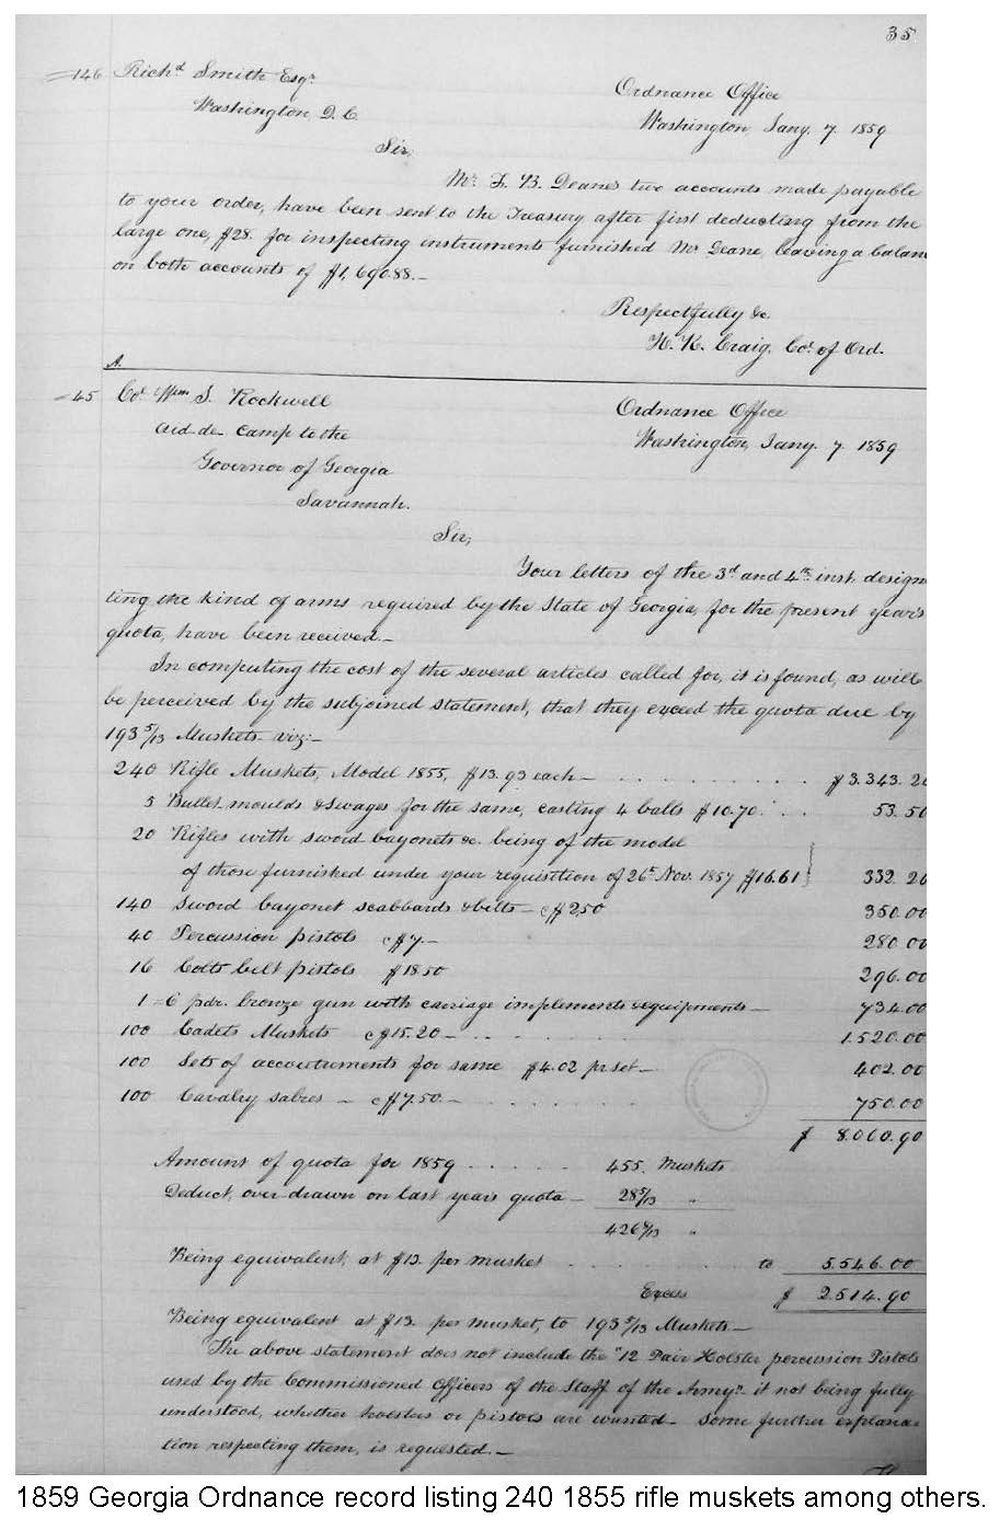 35
146 Richd Smith Esqr
Washington, D.C.
Ordnance Office
Washington, Jany. 7. 1859
Sir,
Mr. F. B. Deane's two accounts made payable
to your order, have been sent to the Treasury after first deducting from the
large one, $28. for inspecting instruments furnished Mr Deane, leaving a balan
on both accounts of $1,690.88.-
Respectfully &c.
H. K. Craig, Col. of Ord.
A.
45 Col Wm S. Rockwell
aid de camp to the
Governor of Georgia
Savannah.
Ordnance Office
Washington, Jany. 7. 1859
Sir,
Your letters of the 3d and 4th inst. design
ting the kind of arms required by the State of Georgia, for the present year's
quota, have been received.-
In computing the cost of the several articles called for, it is found, as will
be perceived by the subjoined statement, that they exceed the quota due by
193 5/13 Muskets viz:-
240 Rifle Muskets, Model 1855, $13.93 each - . . . . . . . . . $3.343.20
5 Bullet moulds & swages for the same, casting 4 balls $10.70. . . 53.50
20 Rifles with sword bayonets &c. being of the model
of those furnished under your requisition of 26th Nov. 1857 $16.61 } 332.20
140 Sword bayonet scabbards & belts - @ $2.50 350.00
40 Percussion pistols @ $7.- 280.00
16 Colts belt pistols $18.50 296.00
1 = 6 pdr. bronze gun with carriage implements & equipments - 734.00
100 Cadets Muskets @ $15.20 - . . . . . 1.520.00
100 Sets of accoutrements for same $4.02 pr set - 402.00
100 Cavalry sabres - @ $7.50.- . . . . . . 750.00
$ 8.060.90
Amount of quota for 1859 . . . . . 455. Muskets
Deduct, over drawn on last year's quota - 28 5/13 "
426 8/13 "
Being equivalent, at $13. per musket . . . . . . . to 5.546.00
Excess $ 2.514.90
Being equivalent at $13. per musket, to 193 5/13 Muskets -
The above statement does not include the "12 Pair Holster percussion Pistols
used by the Commissioned Officers of the Staff of the Army" it not being fully
understood, whether holsters or pistols are wanted - Some further explana=
tion respecting them, is requested.-
1859 Georgia Ordnance record listing 240 1855 rifle muskets among others.